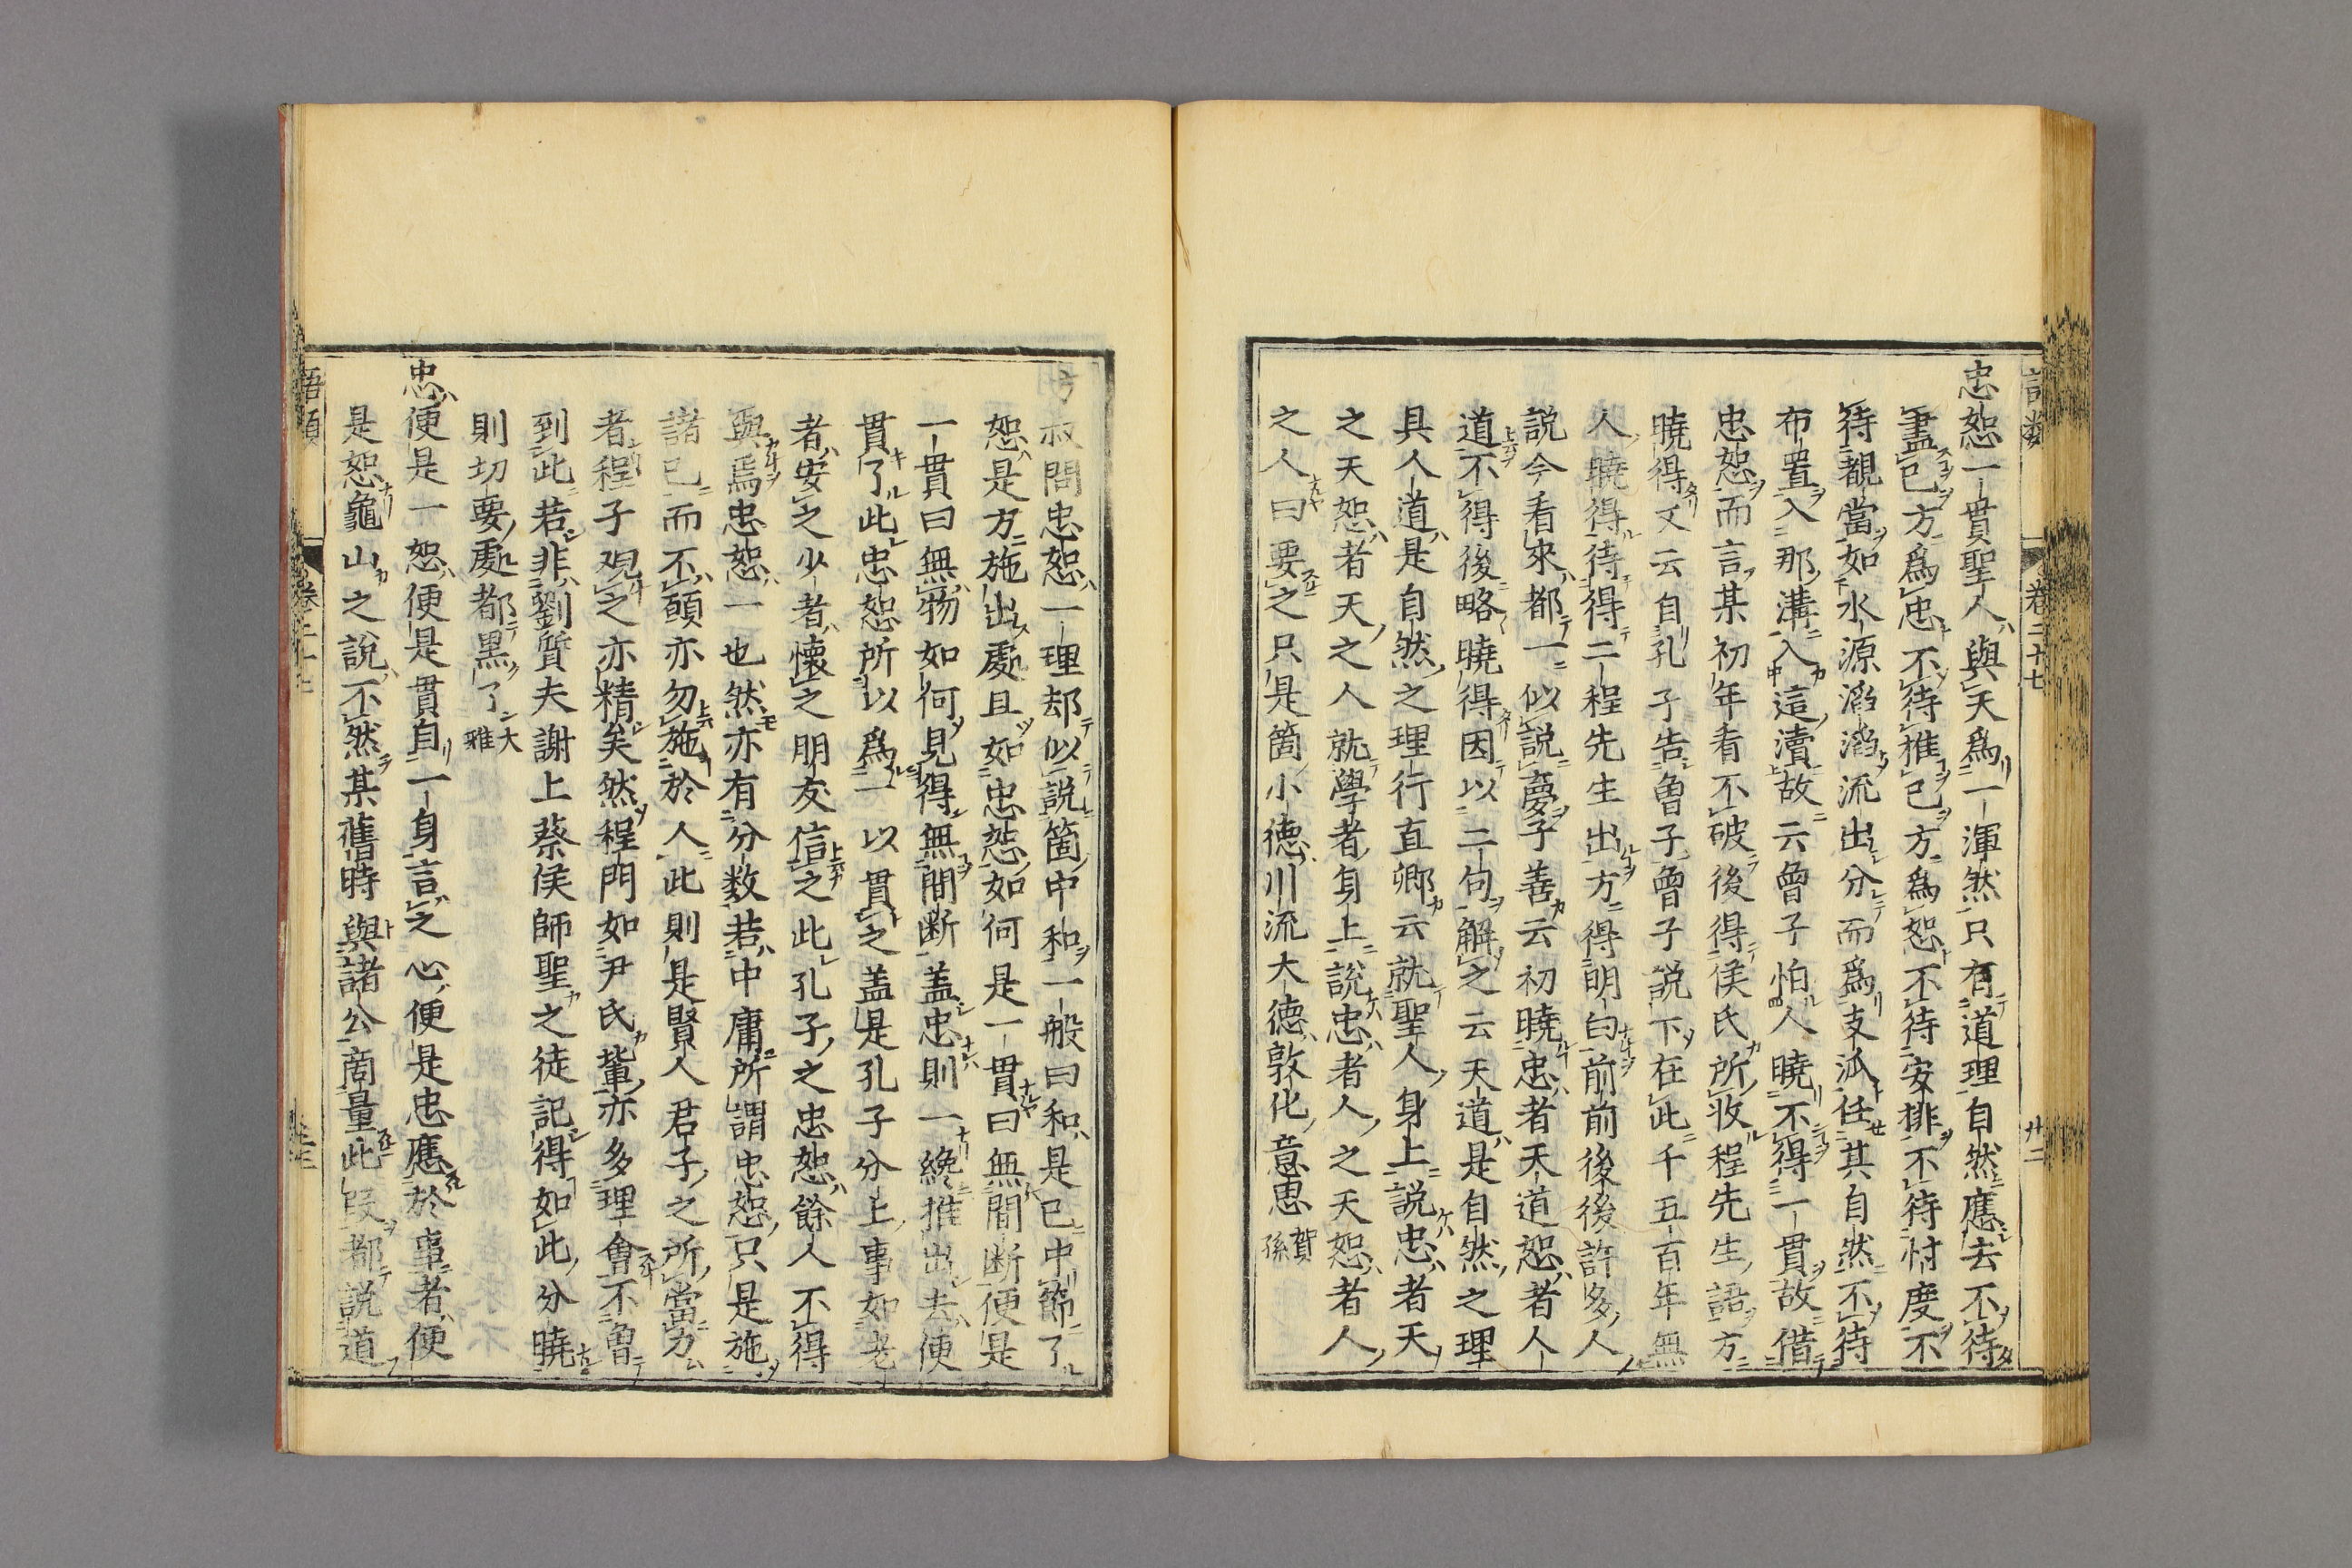 語類 卷二十七 廿二
忠恕一貫聖人與天爲一渾然只有道理自然應去不待
盡己方爲忠不待推己方爲恕不待安排不待忖度不
待覩當如水源滔滔流出分而爲支派任其自然不待
布置入那溝入這瀆故云曾子怕人曉不得一貫故借
忠恕而言某初年看不破後得侯氏所收程先生語方
曉得又云自孔子告曾子曾子説下在此千五百年無
人曉得待得二程先生出方得明白前前後後許多人
説今看來都一似説夢子善云初曉忠者天道恕者人
道不得後略曉得因以二句解之云天道是自然之理
具人道是自然之理行直卿云就聖人身上説忠者天
之天恕者天之人就學者身上説忠者人之天恕者人
之人曰要之只是箇小德川流大德敦化意思 賀孫
方叔問忠恕一理却似説箇中和一般曰和是已中節了
恕是方施出處且如忠恕如何是一貫曰無間断便是
一貫曰無物如何見得無間断盖忠則一纔推出去便
貫了此忠恕所以爲一以貫之盖是孔子分上事如老
者安之少者懷之朋友信之此孔子之忠恕餘人不得
與焉忠恕一也然亦有分数若中庸所謂忠恕只是施
諸己而不願亦勿施於人此則是賢人君子之所當力
者程子观之亦精矣然程門如尹氏輩亦多理會不曾
到此若非劉質夫謝上蔡侯師聖之徒記得如此分曉
則切要處都黒了 大雅
忠便是一恕便是貫自一身言之心便是忠應於事者便
是恕龜山之説不然某舊時與諸公商量此段都説道
語類 卷二十七